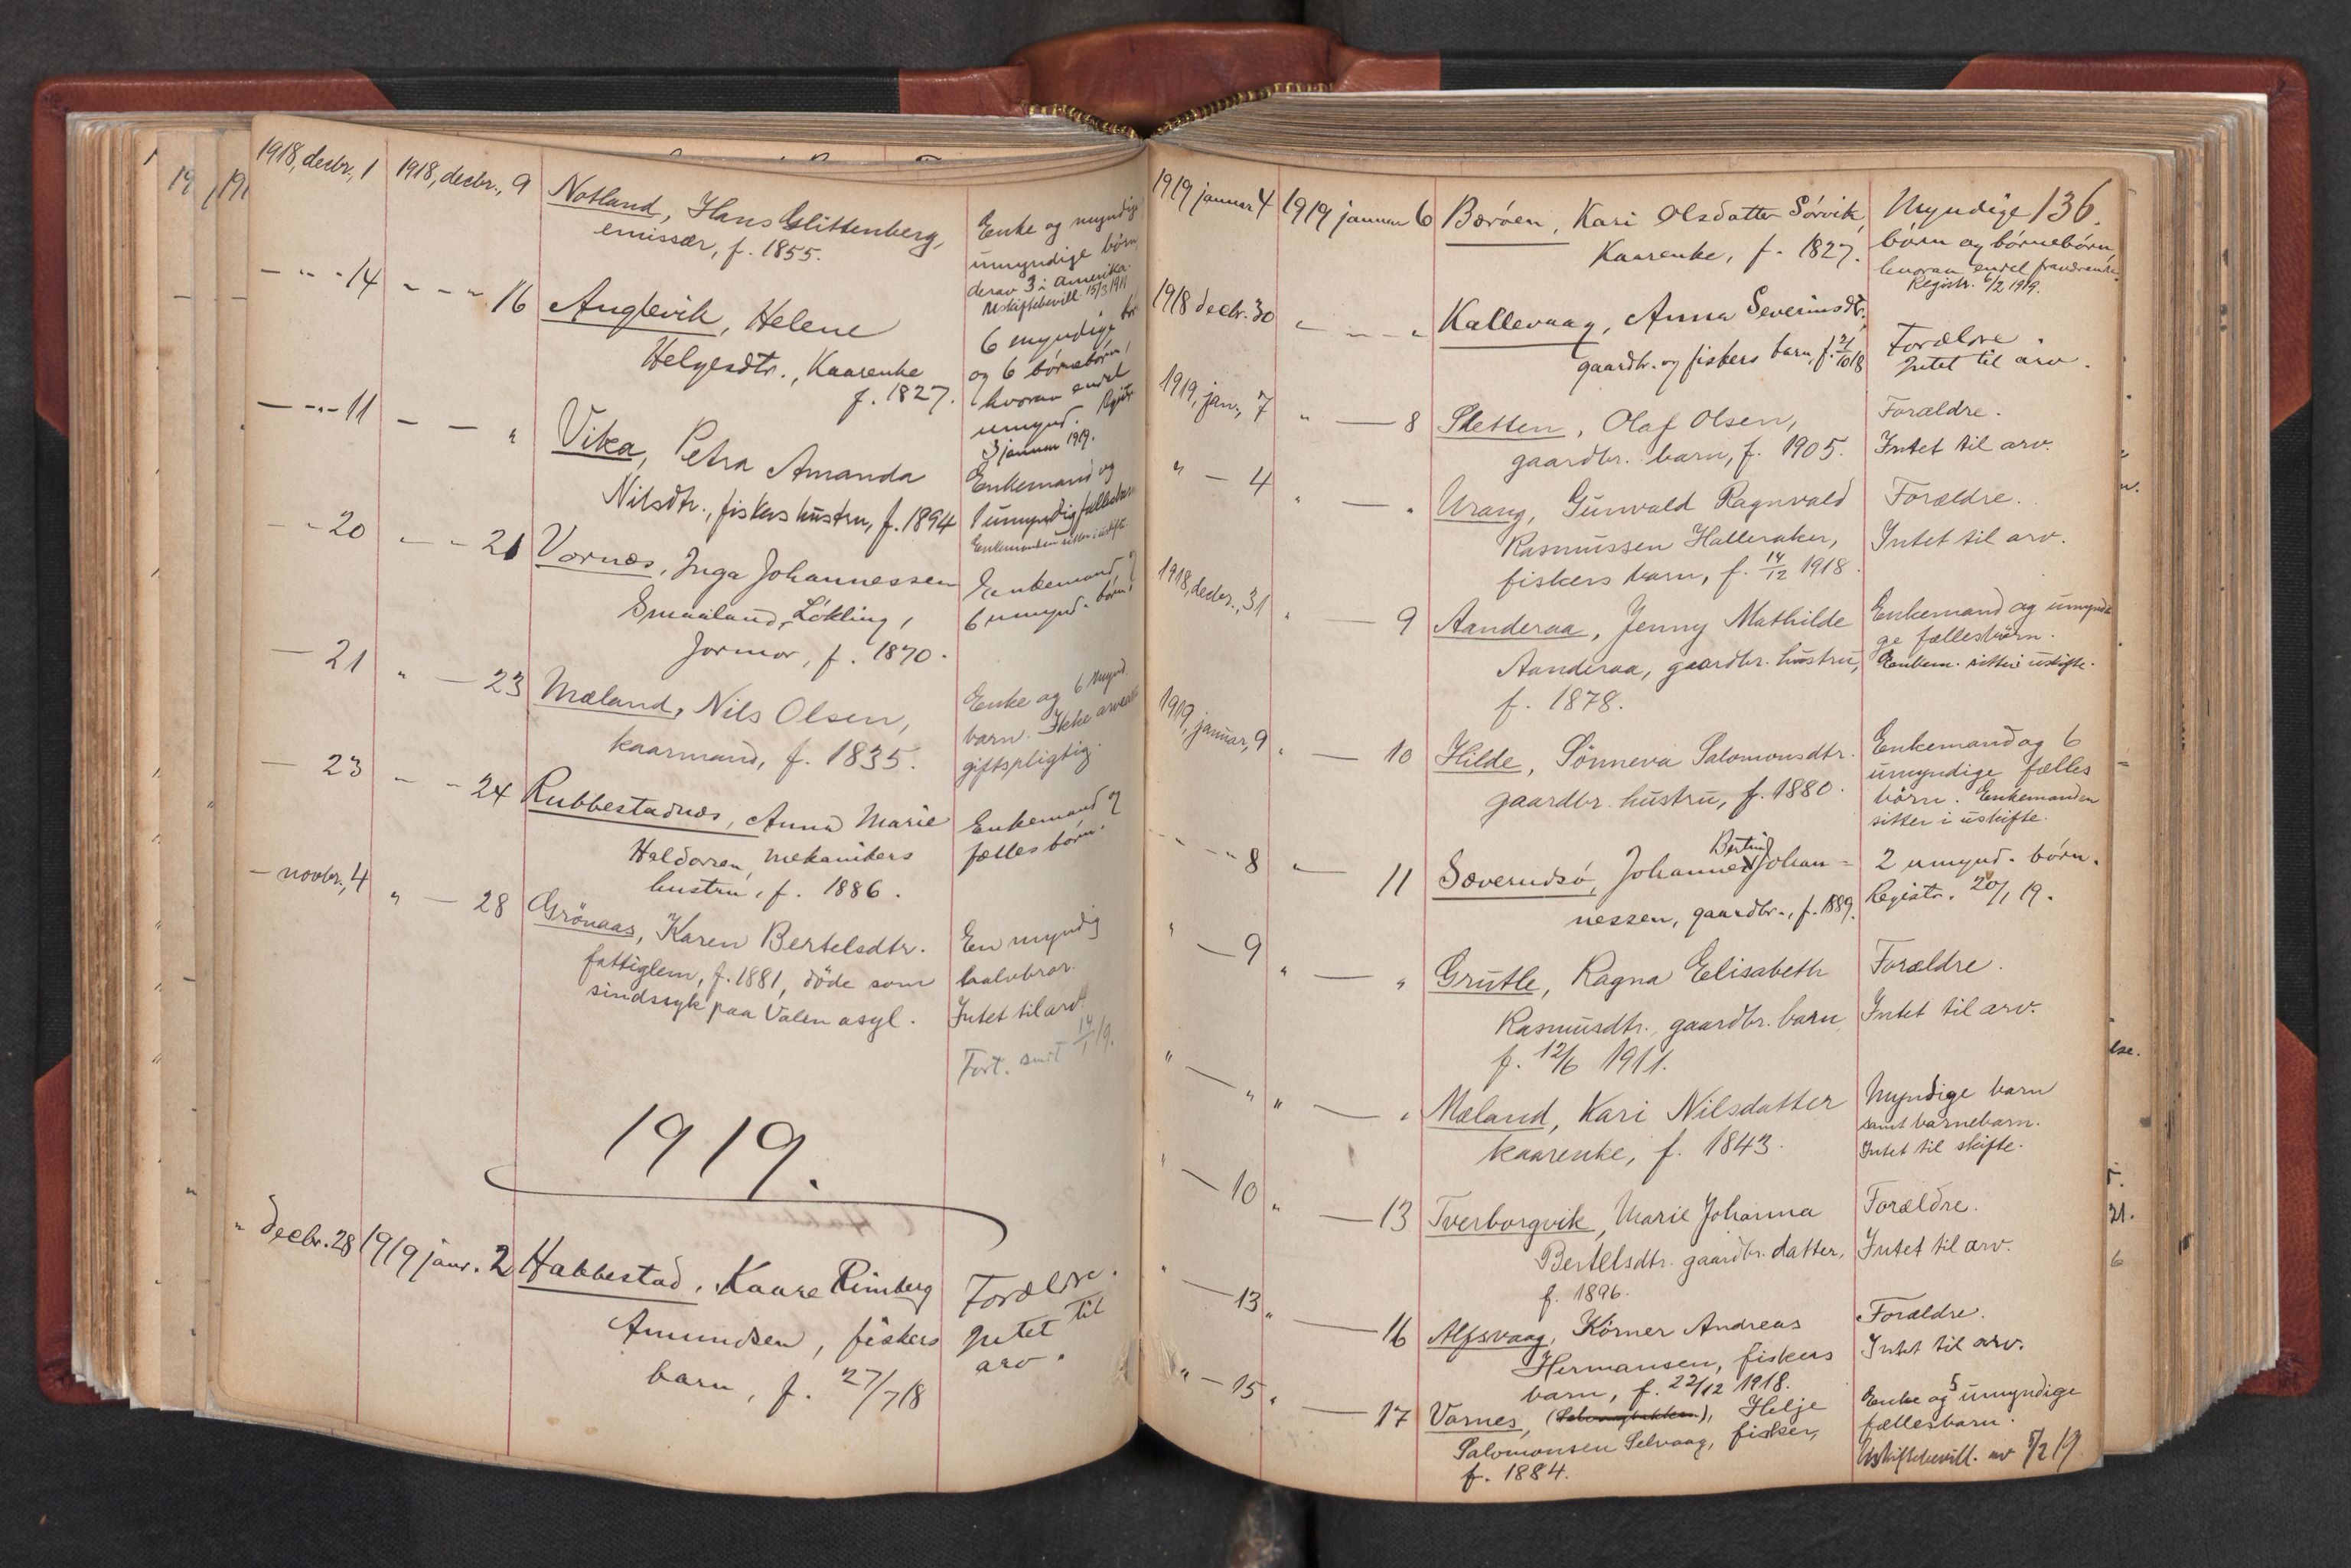 1918, decbr., 1 1918, decbr., 9 Notland, Hans Glittenberg,
emissær, f. 1855.
Enke og myndige
umyndige børn,
derav 3 i Amerika.
Uskiftebevill. 15/3 1919
- " - 14 - - - 16 Anglevik, Helene
Helgesdtr., Kaarenke
f. 1827.
6 myndige
og 6 børnebørn,
hvoraf endel
umynd. Registr.
3 januar 1919.
- - " - 11 - - " Vika, Petra Amanda
Nilsdtr., fiskers hustru, f. 1894
Enkemand og
1 umyndig fællesbarn
Enkemanden sitter i uskifte
- - 20 - - - 21 Vornæs, Inga Johannessen
Smaaland, Løkling,
Jormor, f. 1870.
Enkemand og
6 umynd. børn.
- 21 " - 23 Mæland, Nils Olsen,
kaarmand, f. 1835.
Enke og 6 mynd.
barn. Ikke arveav
giftspligtig.
- 23 - - - 24 Rubbestadnæs, Anna Marie
Haldorsen, mekanikers
hustru, f. 1886.
Enkemand og
fælles børn.
- novbr., 4 " - 28 Grönaas, Karen Bertelsdtr.
fattiglem, f. 1881, döde som
sindssyk paa Valen asyl.
En myndig
halvbror.
Intet til arv.
Fort. sendt 14/1 19.
1919.
" decbr. 28 1919 janr. 2 Habbestad, Kaare Rimberg
Amundsen, fiskers
barn, f. 27/7 18
Forældre.
Intet til
arv.
136.
1919 januar 4 1919 januar 6 Børöen, Kari Olsdatter Sörvik,
Kaarenke, f. 1827.
Myndige
børn og børnebørn
hvorav endel fraværende.
Registr. 6/2 1919.
1918 decbr. 30 " - - " Kallevaag, Anna Severinsdtr.,
gaardbr. og fiskers barn, f. 21/10 18
Forældre.
Intet til arv.
1919, jan., 7 " - 8 Sletten, Olaf Olsen,
gaardbr. barn, f. 1905.
Forældre.
Intet til arv.
" - 4 " - " Urang, Gunvald Ragnvald
Rasmussen Halleraker,
fiskers barn, f. 14/12 1918.
Forældre.
Intet til arv.
1918, decbr., 31 " - 9 Aanderaa, Jenny Mathilde
Aanderaa, gaardbr. hustru,
f. 1878.
Enkemand og umyndi
ge fællesbörn.
Enkem. sitter i uskifte.
1919, januar, 9 " - 10 Hilde, Sönneva Salomonsdtr.
gaardbr. hustru, f. 1880.
Enkemand og 6
umyndige fælles
börn. Enkemanden
sitter i uskifte.
- - - 8 " - 11 Sæverudsö, Johannes Bertinus Johan=
nessen, gaardbr., f. 1889.
2 umynd. börn.
Registr. 20/1 19.
" - 9 " - " Grutle, Ragna Elisabeth
Rasmusdtr. gaardbr. barn,
f. 12/6 1911.
Forældre.
Intet til arv.
" - " " - " Mæland, Kari Nilsdatter
kaarenke, f. 1843.
Myndige barn
samt barnebarn.
Intet til skifte.
" - 10 " - 13 Tverborgvik, Marie Johanna
Bertelsdtr. gaardbr. datter,
f. 1896.
Forældre.
Intet til arv.
" - 13 " - 16 Alfsvaag, Körner Andreas
Hermansen, fiskers
barn, f. 22/12 1918.
Forældre.
Intet til arv.
" - 15 " - 17 Varnes, Helje
Salomonsen Selvaag, fisker,
f. 1884.
Enke og 5 umyndige
fællesbarn.
Uskiftebevill. av 5/2 19